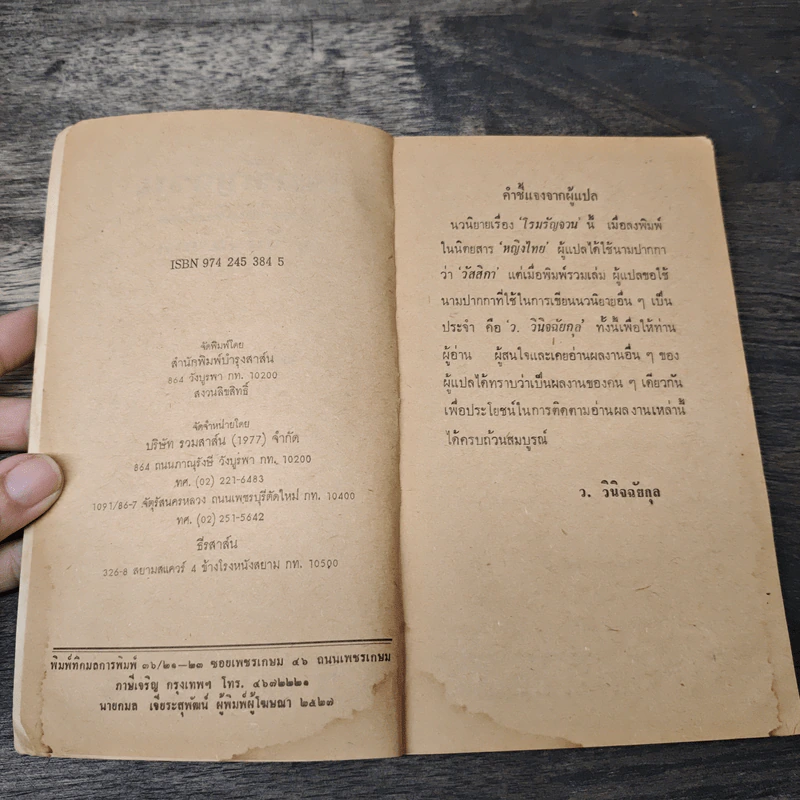 ISBN 974 245 384 5
จัดพิมพ์โดย
สำนักพิมพ์บำรุงสาส์น
864 วังบูรพา กท. 10200
สงวนลิขสิทธิ์
จัดจำหน่ายโดย
บริษัท รวมสาส์น (1977) จำกัด
864 ถนนภาณุรังษี วังบูรพา กท. 10200
ทศ. (02) 221-6483
1091/86-7 จัตุรัสนครหลวง ถนนเพชรบุรีตัดใหม่ กท. 10400
ทศ. (02) 251-5642
ธีรสาส์น
326-8 สยามสแควร์ 4 ข้างโรงหนังสยาม กท. 10500
พิมพ์ที่กมลการพิมพ์ ๓๖/๒๑-๒๓ ซอยเพชรเกษม ๔๖ ถนนเพชรเกษม
ภาษีเจริญ กรุงเทพฯ โทร. ๔๖๗๒๒๒๑
นายกมล เจียระสุพัฒน์ ผู้พิมพ์ผู้โฆษณา ๒๕๒๗
คำชี้แจงจากผู้แปล
นวนิยายเรื่อง 'ไรมรัญจวน' นี้ เมื่อลงพิมพ์
ในนิตยสาร 'หญิงไทย' ผู้แปลได้ใช้นามปากกา
ว่า 'วัสสิกา' แต่เมื่อพิมพ์รวมเล่ม ผู้แปลขอใช้
นามปากกาที่ใช้ในการเขียนนวนิยายอื่น ๆ เป็น
ประจำ คือ 'ว. วินิจฉัยกุล' ทั้งนี้เพื่อให้ท่าน
ผู้อ่าน ผู้สนใจและเคยอ่านผลงานอื่น ๆ ของ
ผู้แปลได้ทราบว่าเป็นผลงานของคน ๆ เดียวกัน
เพื่อประโยชน์ในการติดตามอ่านผลงานเหล่านี้
ได้ครบถ้วนสมบูรณ์
ว. วินิจฉัยกุล